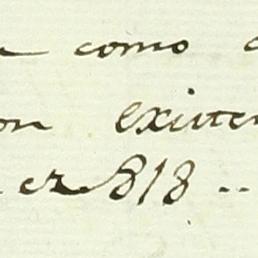 como
on existen
ez 818 ..